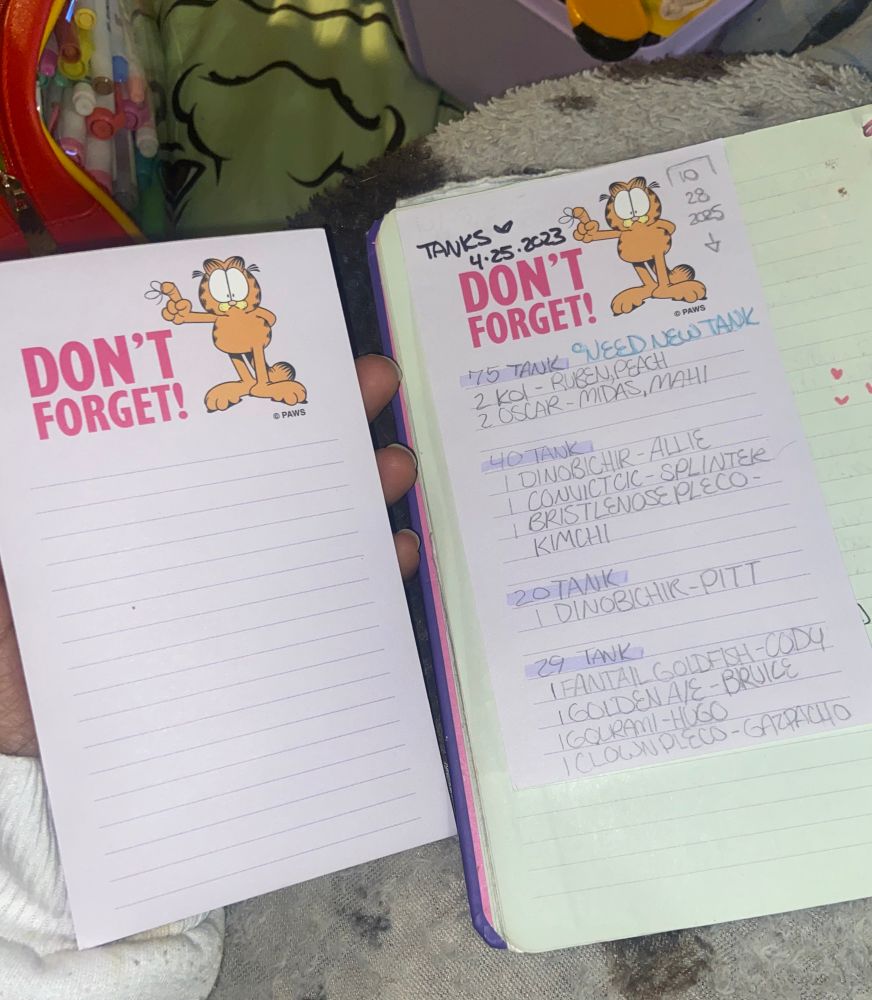 DON'T
FORGET!
© PAWS
TANKS
4.25.2023
10
28
2025
DON'T
FORGET!
© PAWS
NEED NEW TANK
75 TANK
2 KOI - RUBEN, PEACH
2 OSCAR - MIDAS, MAHI
40 TANK
1 DINOBICHIR - ALLIE
1 CONVICTCIC - SPLINTER
1 BRISTLENOSE PLECO -
KIMCHI
20 TANK
1 DINOBICHIR - PITT
29 TANK
1 FANTAIL GOLDFISH - CODY
1 GOLDEN A/E - BRUICE
1 GOURAMI - HUGO
1 CLOWN PLECO - GAZPACHO